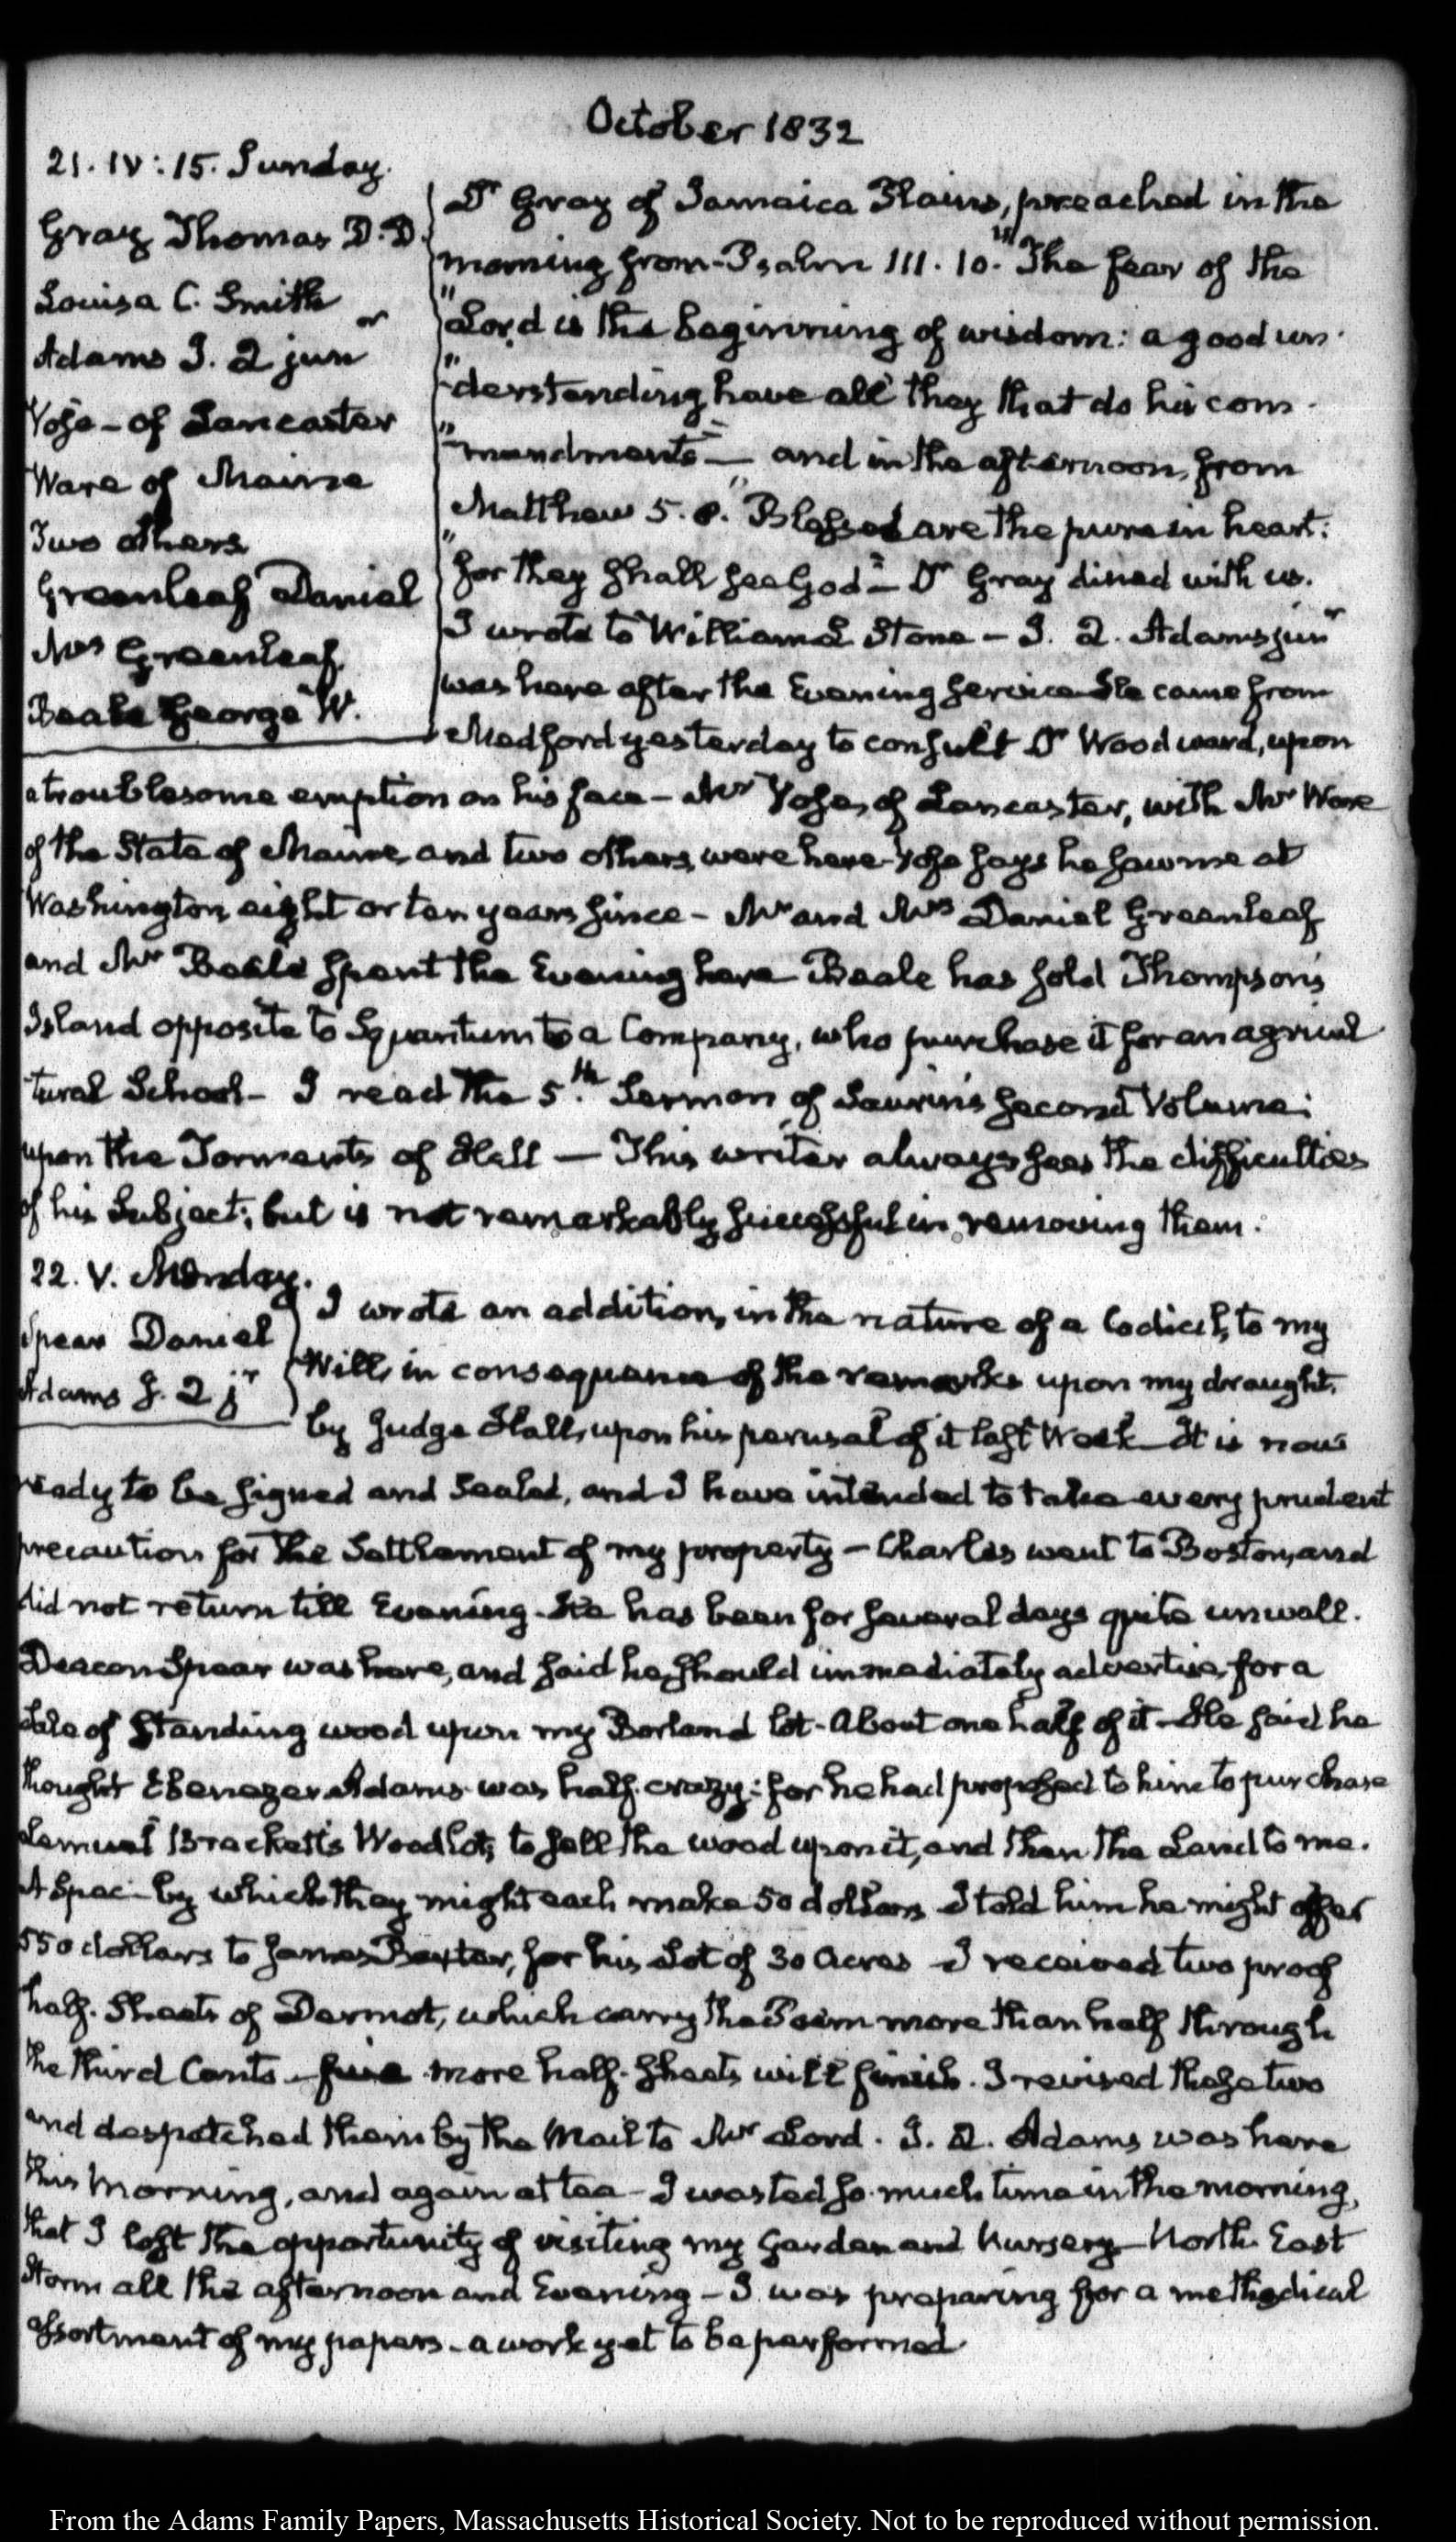 October 1832
21. IV: 15. Sunday.
Gray Thomas D.D.
Louisa C. Smith
Adams J. Q junr
Vose - of Lancaster
Ware of Maine
Two others
Greenleaf Daniel
Mrs Greenleaf
Beale George W.
Dr Gray of Jamaica Plains, preached in the
morning from Psalm 111. 10. "The fear of the
"Lord is the beginning of wisdom: a good un-
"derstanding have all they that do his com-
"mandments" — and in the afternoon, from
Matthew 5. 8. "Blessed are the pure in heart:
"for they shall see God" — Dr Gray dined with us.
I wrote to William L Stone — J. Q. Adams junr
was here after the Evening service He came from
Medford yesterday to consult Dr Woodward, upon
a troublesome eruption on his face — Mr Vose, of Lancaster, with Mr Ware
of the State of Maine, and two others, were here - Vose says he saw me at
Washington, eight or ten years since - Mr and Mrs Daniel Greenleaf
and Mr Beale spent the Evening here Beale has sold Thompson's
Island opposite to Squantum to a Company, who purchase it for an agricul
tural School - I read the 5.th Sermon of Saurin's second Volume;
upon the Torments of Hell — This writer always sees the difficulties
of his Subject; but is not remarkably successful in removing them.
22. V. Monday.
Spear Daniel
Adams J. Q jr
I wrote an addition, in the nature of a Codicil, to my
Will, in consequence of the remarks upon my draught,
by Judge Hall, upon his perusal of it last Week - It is now
ready to be signed and sealed, and I have intended to take every prudent
precaution for the Settlement of my property — Charles went to Boston, and
did not return till Evening. He has been for several days quite unwell.
Deacon Spear was here, and said he should immediately advertise, for a
Sale of standing wood upon my Borland lot - About one half of it - He said he
thought Ebenezer Adams was half-crazy: for he had proposed to him to purchase
Lemuel Brackett's Woodlot; to sell the wood upon it, and then the Land to me.
A Spec - by which they might each make 50 dollars I told him he might offer
550 dollars to James Baxter, for his Lot of 30 Acres - I received two proof
half-Sheets of Dermot, which carry the Poem more than half through
the third Canto - five more half-sheets will finish. I revised these two
and despatched them by the Mail to Mr Lord. J. Q. Adams was here
this Morning, and again at tea - I wasted so much time in the morning,
that I lost the opportunity of visiting my Garden and Nursery - North East
Storm all the afternoon and Evening - I was preparing for a methodical
assortment of my papers - a work yet to be performed
From the Adams Family Papers, Massachusetts Historical Society. Not to be reproduced without permission.